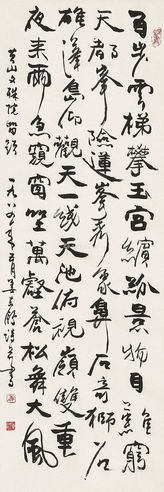 百步雲梯攀玉宮繽紛景物目難窮
天都峯險蓮峯秀象鼻石奇獅石
雄蓬島仰觀天一綫天池俯視嶺雙重
夜来雨急窺窗坐萬壑蒼松舞大風
黄山文殊院 一九八四年五月